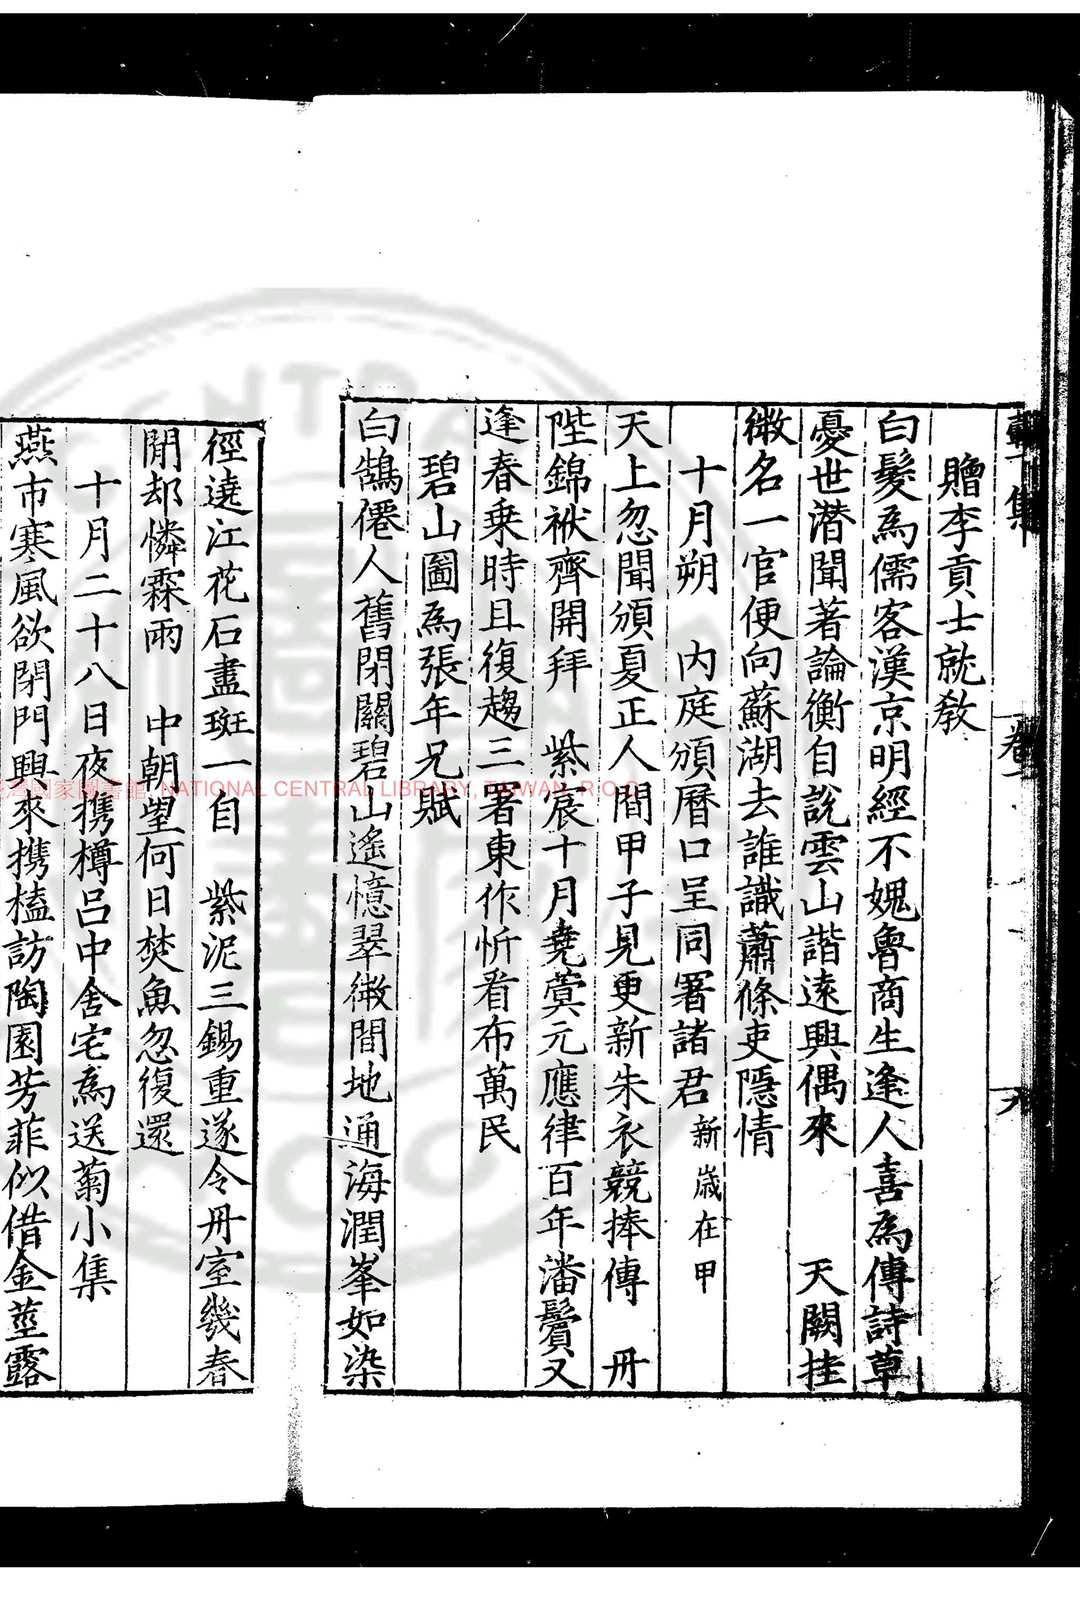 贈李貢士就教
白髮為儒客漢京明經不媿魯商生逢人喜為傳詩草
憂世潛聞著論衡自說雲山諧遠興偶來 天闕挂
微名一官便向蘇湖去誰識蕭條吏隱情
十月朔 內庭頒曆口呈同署諸君新歲在甲
天上忽聞頒夏正人間甲子見更新朱衣競捧傳 冊
陛錦袱齊開拜 紫宸十月堯蓂元應律百年潘鬢又
逢春乗時且復趨三署東作忻看布萬民
碧山圖為張年兄賦
白鵠僊人舊閉關碧山遙憶翠微間地通海潤峯如染
徑遶江花石盡斑一自 紫泥三錫重遂令丹室幾春
閒却憐霖雨 中朝望何日焚魚忽復還
十月二十八日夜携樽呂中舍宅為送菊小集
燕市寒風欲閉門興來携榼訪陶園芳菲似借金莖露
卷
九
NATIONAL CENTRAL LIBRARY, TAIWAN, R.O.C.